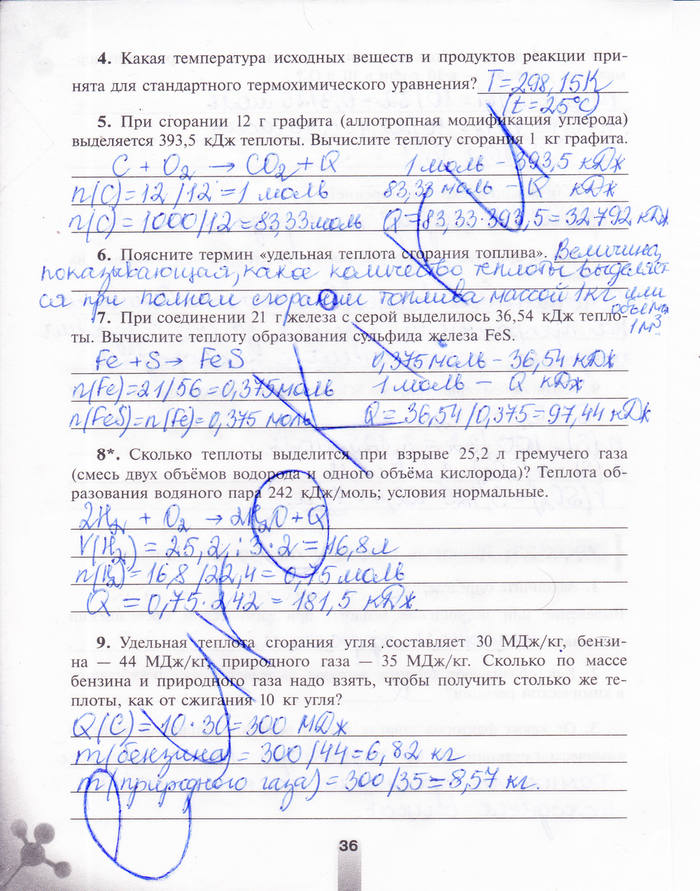 4. Какая температура исходных веществ и продуктов реакции при-
нята для стандартного термохимического уравнения? T=298,15K
(t=25°C)
5. При сгорании 12 г графита (аллотропная модификация углерода)
выделяется 393,5 кДж теплоты. Вычислите теплоту сгорания 1 кг графита.
C + O₂ → CO₂ + Q 1 моль – 393,5 кДж
n(C)=12/12=1 моль 83,33 моль – Q кДж
n(C)=1000/12=83,33 моль Q=83,33·393,5=32792 кДж
6. Поясните термин «удельная теплота сгорания топлива». Величина,
показывающая, какое количество теплоты выделяет-
ся при полном сгорании топлива массой 1 кг или
объёма
1 м³
7. При соединении 21 г железа с серой выделилось 36,54 кДж тепло-
ты. Вычислите теплоту образования сульфида железа FeS.
Fe + S → FeS 0,375 моль – 36,54 кДж
n(Fe)=21/56=0,375 моль 1 моль – Q кДж
n(FeS)=n(Fe)=0,375 моль Q=36,54/0,375=97,44 кДж
8*. Сколько теплоты выделится при взрыве 25,2 л гремучего газа
(смесь двух объёмов водорода и одного объёма кислорода)? Теплота об-
разования водяного пара 242 кДж/моль; условия нормальные.
2H₂ + O₂ → 2H₂O + Q
V(H₂) = 25,2 : 3 · 2 = 16,8 л
n(H₂)=16,8/22,4=0,75 моль
Q = 0,75·242 = 181,5 кДж.
9. Удельная теплота сгорания угля составляет 30 МДж/кг, бензи-
на — 44 МДж/кг, природного газа — 35 МДж/кг. Сколько по массе
бензина и природного газа надо взять, чтобы получить столько же те-
плоты, как от сжигания 10 кг угля?
Q(C)=10·30=300 МДж
m(бензина)=300/44=6,82 кг
m(природного газа)=300/35=8,57 кг.
36